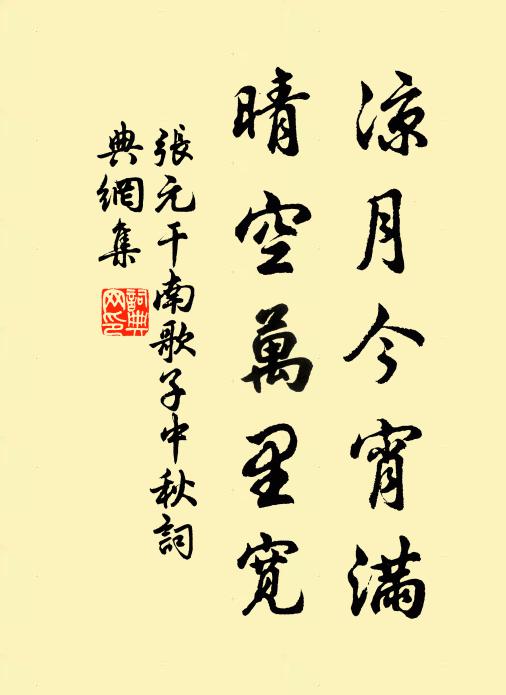 涼月今宵滿
晴空萬里寬
張元干南歌子中秋詞
典網集
詞典
网印